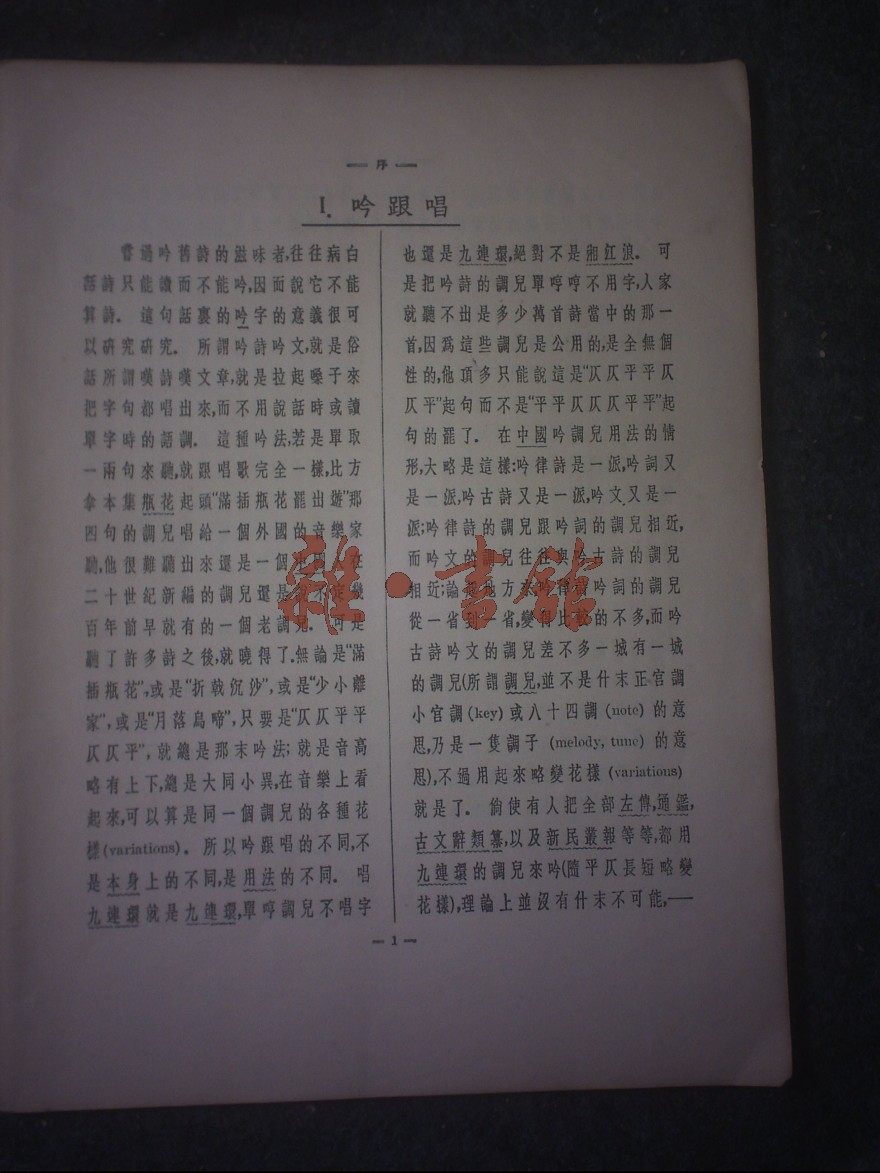 序
1. 吟跟唱
嘗過吟舊詩的滋味者,往往病白
話詩只能讀而不能吟,因而說它不能
算詩. 這句話裏的吟字的意義很可
以研究研究. 所謂吟詩吟文,就是俗
話所謂嘆詩嘆文章,就是拉起嗓子來
把字句都唱出來,而不用說話時或讀
單字時的語調. 這種吟法,若是單取
一兩句來聽,就跟唱歌完全一樣,比方
拿本集瓶花起頭“滿插瓶花罷出遊”那
四句的調兒唱給一個外國的音樂家
聽,他很難聽出來還是一個中國人在
二十世紀新編的調兒還是說不定幾
百年前早就有的一個老調兒. 可是
聽了許多詩之後,就曉得了.無論是“滿
插瓶花”,或是“折戟沉沙”,或是“少小離
家”,或是“月落烏啼”,只要是“仄仄平平
仄仄平”,就總是那末吟法; 就是音高
略有上下,總是大同小異,在音樂上看
起來,可以算是同一個調兒的各種花
樣(variations). 所以吟跟唱的不同,不
是本身上的不同,是用法的不同. 唱
九連環就是九連環,單哼調兒不唱字
也還是九連環,絕對不是湘江浪. 可
是把吟詩的調兒單哼哼不用字,人家
就聽不出是多少萬首詩當中的那一
首,因爲這些調兒是公用的,是全無個
性的,他頂多只能說這是“仄仄平平仄
仄平”起句而不是“平平仄仄仄平平”起
句的罷了. 在中國吟調兒用法的情
形,大略是這樣:吟律詩是一派,吟詞又
是一派,吟古詩又是一派,吟文又是一
派;吟律詩的調兒跟吟詞的調兒相近,
而吟文的調兒往往與吟古詩的調兒
相近;論起地方來,吟律詩吟詞的調兒
從一省到一省,變得比較的不多,而吟
古詩吟文的調兒差不多一城有一城
的調兒(所謂調兒,並不是什末正宮調
小宮調(key)或八十四調(note)的意
思,乃是一隻調子 (melody, tune) 的意
思),不過用起來略變花樣 (variations)
就是了. 倘使有人把全部左傳,通鑑,
古文辭類纂,以及新民叢報等等,都用
九連環的調兒來吟(隨平仄長短略變
花樣),理論上並沒有什末不可能,——
1
雜·書館